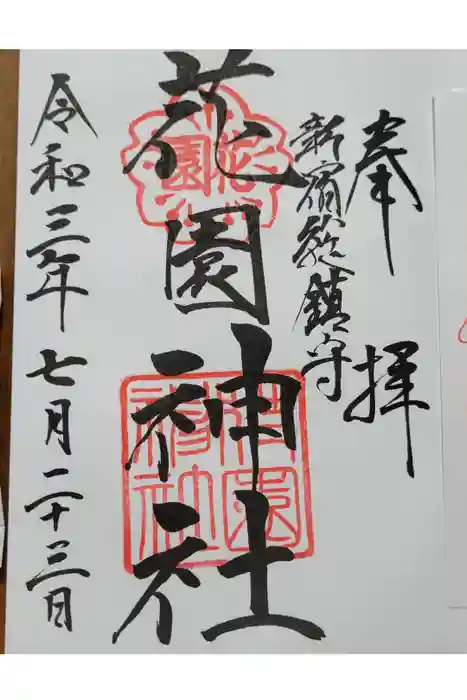 奉拝
新宿総鎮守
花園神社
令和三年七月二十三日
花園
花園神社